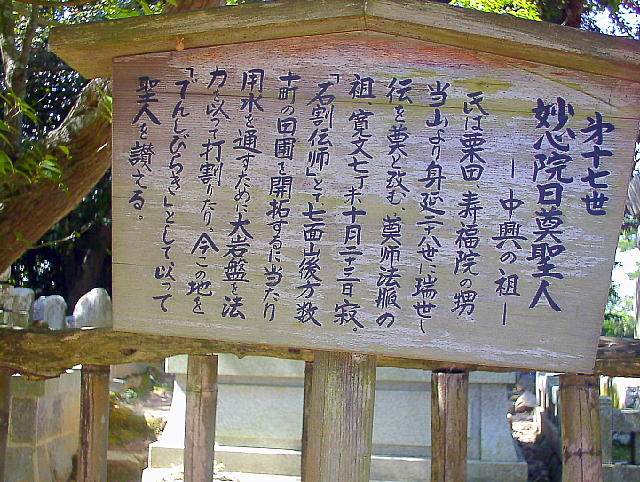 第十七世
妙心院日奠聖人
―中興の祖―
氏は栗田、寿福院の甥、
当山より身延二十八世に瑞世し
伝を奠と改む 奠師法脈の
祖、寛文七丁未十月二十二日寂。
「石割伝師」とて七面山後方数
十町の田圃を開拓するに当たり
用水を通すため大岩盤を法
力を以って打割りたり。今この地を
「でんしびらき」として、以って
聖人を讃える。